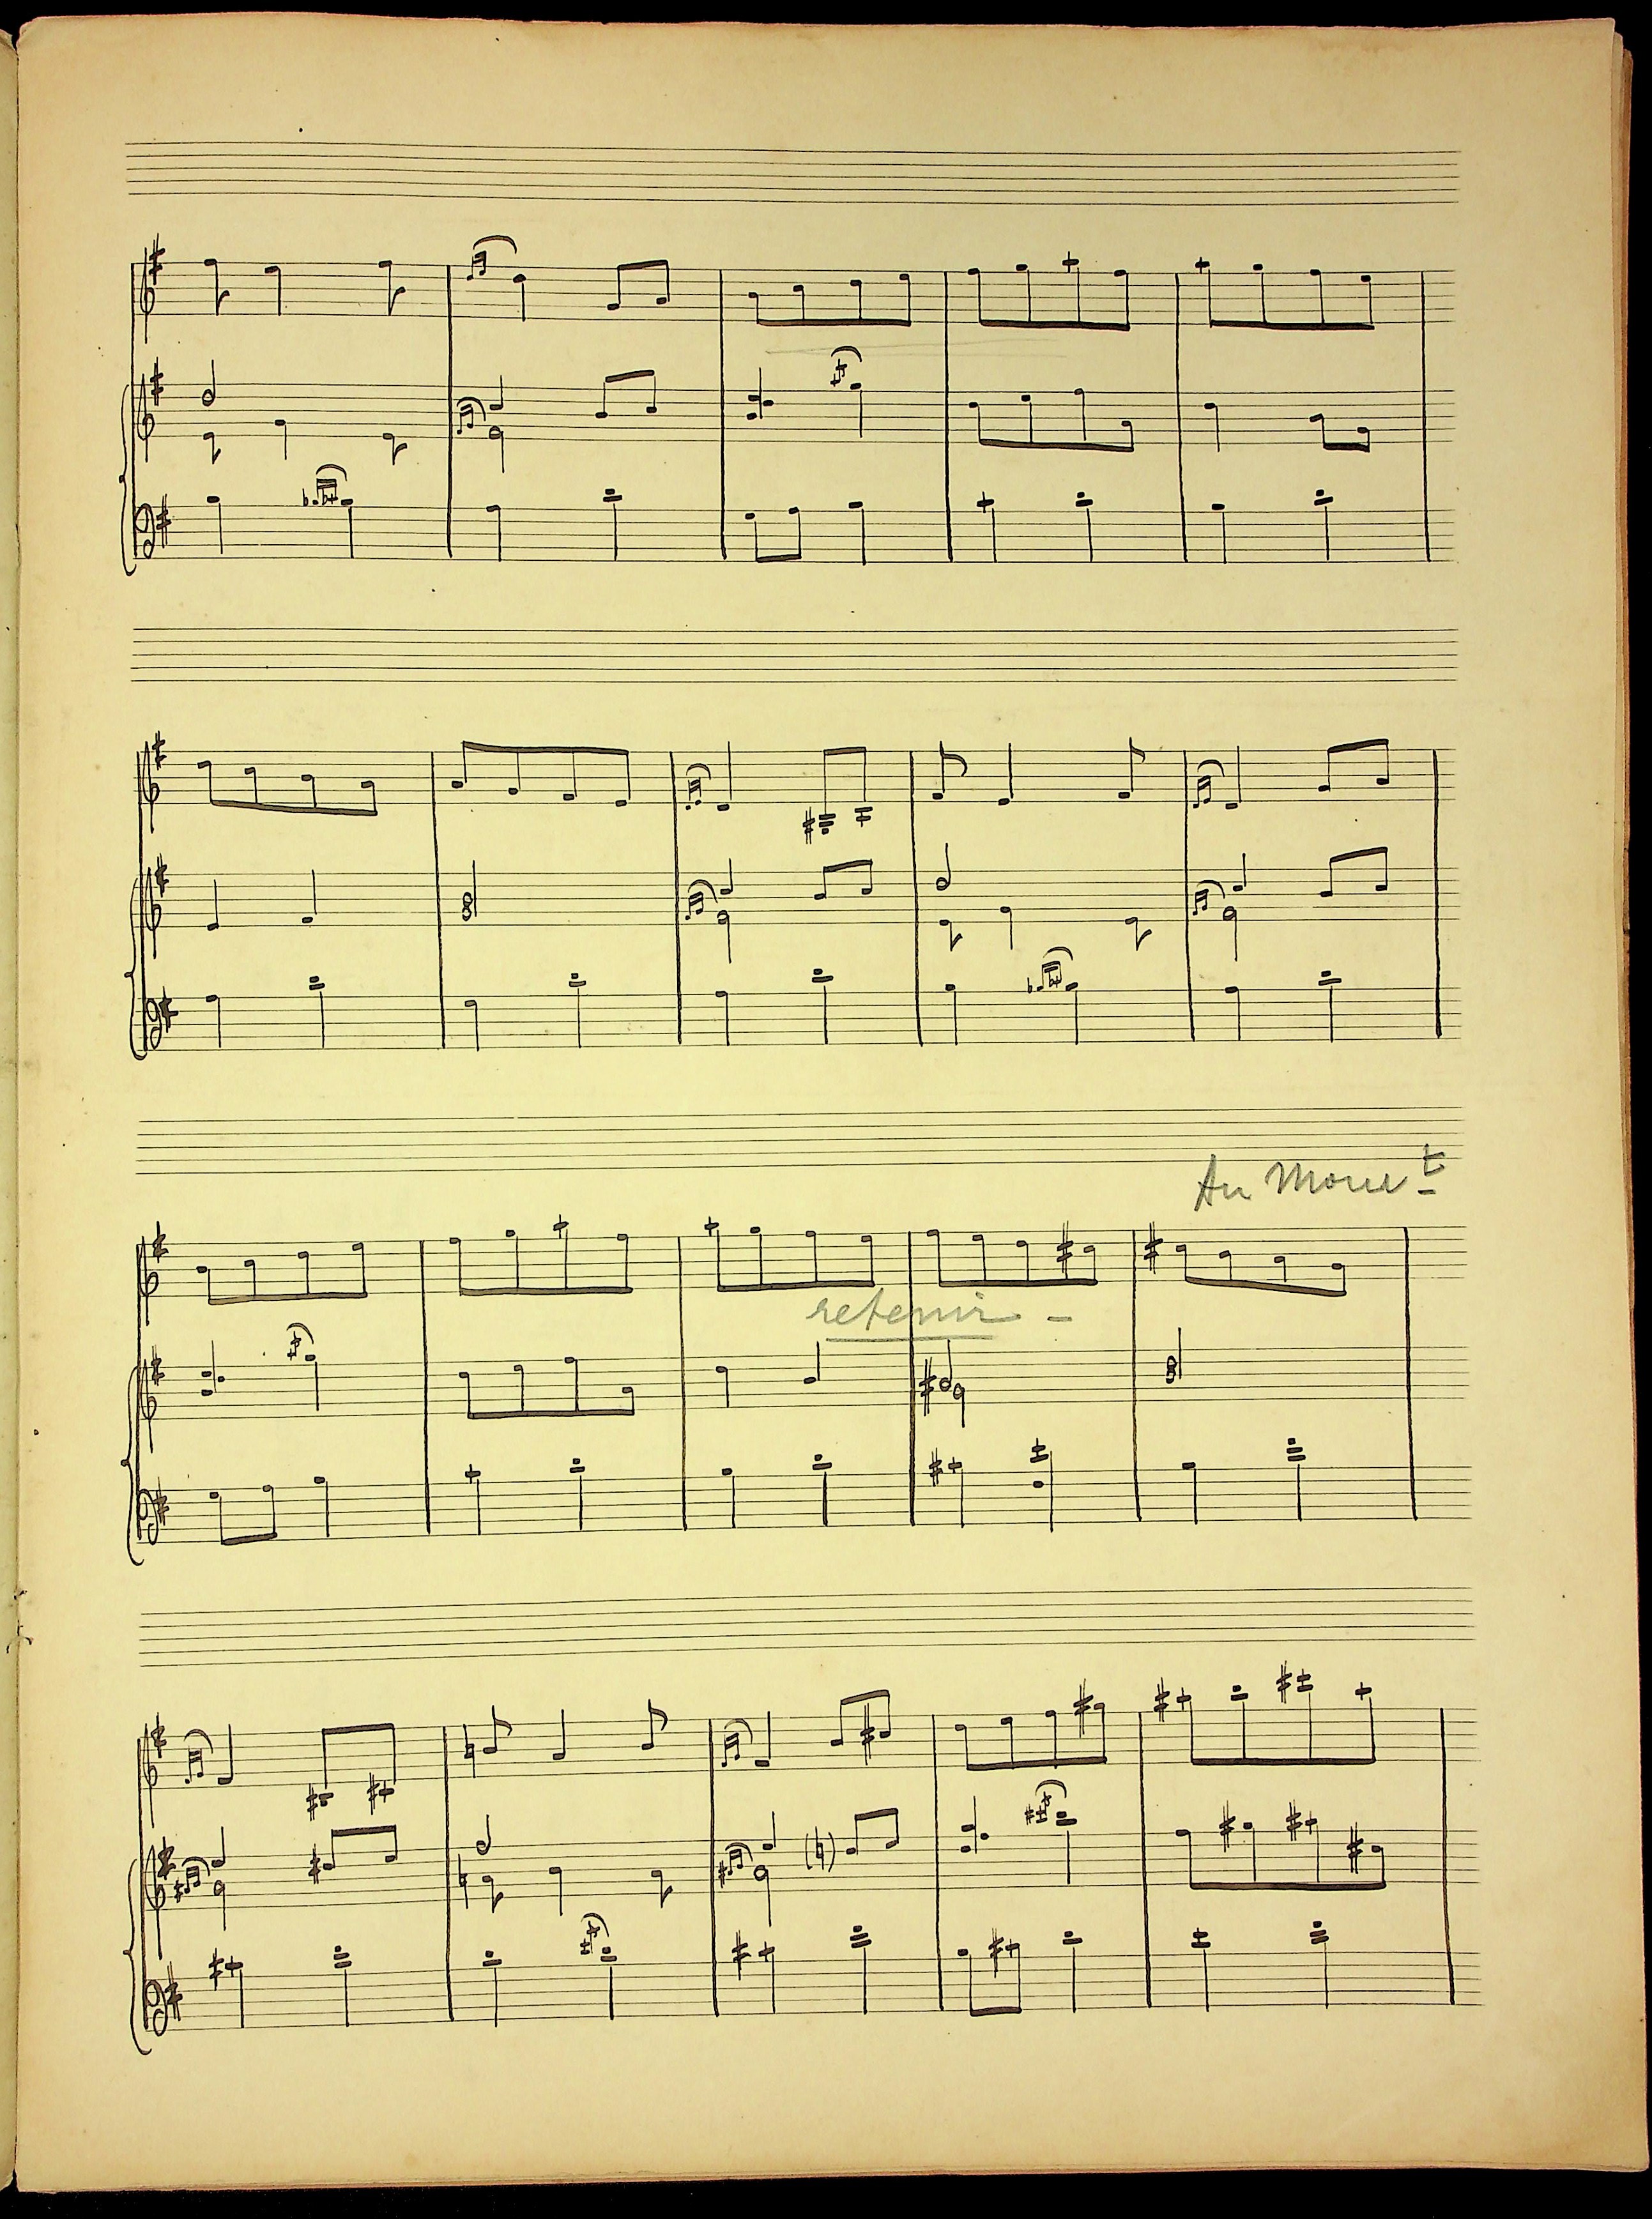 Au Mouv t
retenir -